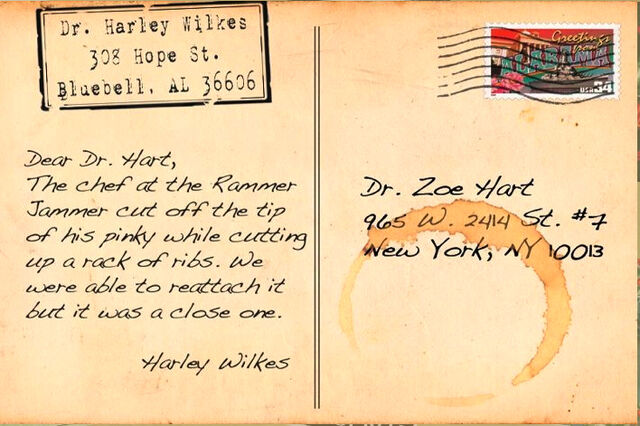 Dr. Harley Wilkes
308 Hope St.
Bluebell, AL 36606
Greetings
from
ALABAMA
USA 34
Dear Dr. Hart,
The chef at the Rammer
Jammer cut off the tip
of his pinky while cutting
up a rack of ribs. We
were able to reattach it
but it was a close one.
Harley Wilkes
Dr. Zoe Hart
965 W. 24th St. #7
New York, NY 10013